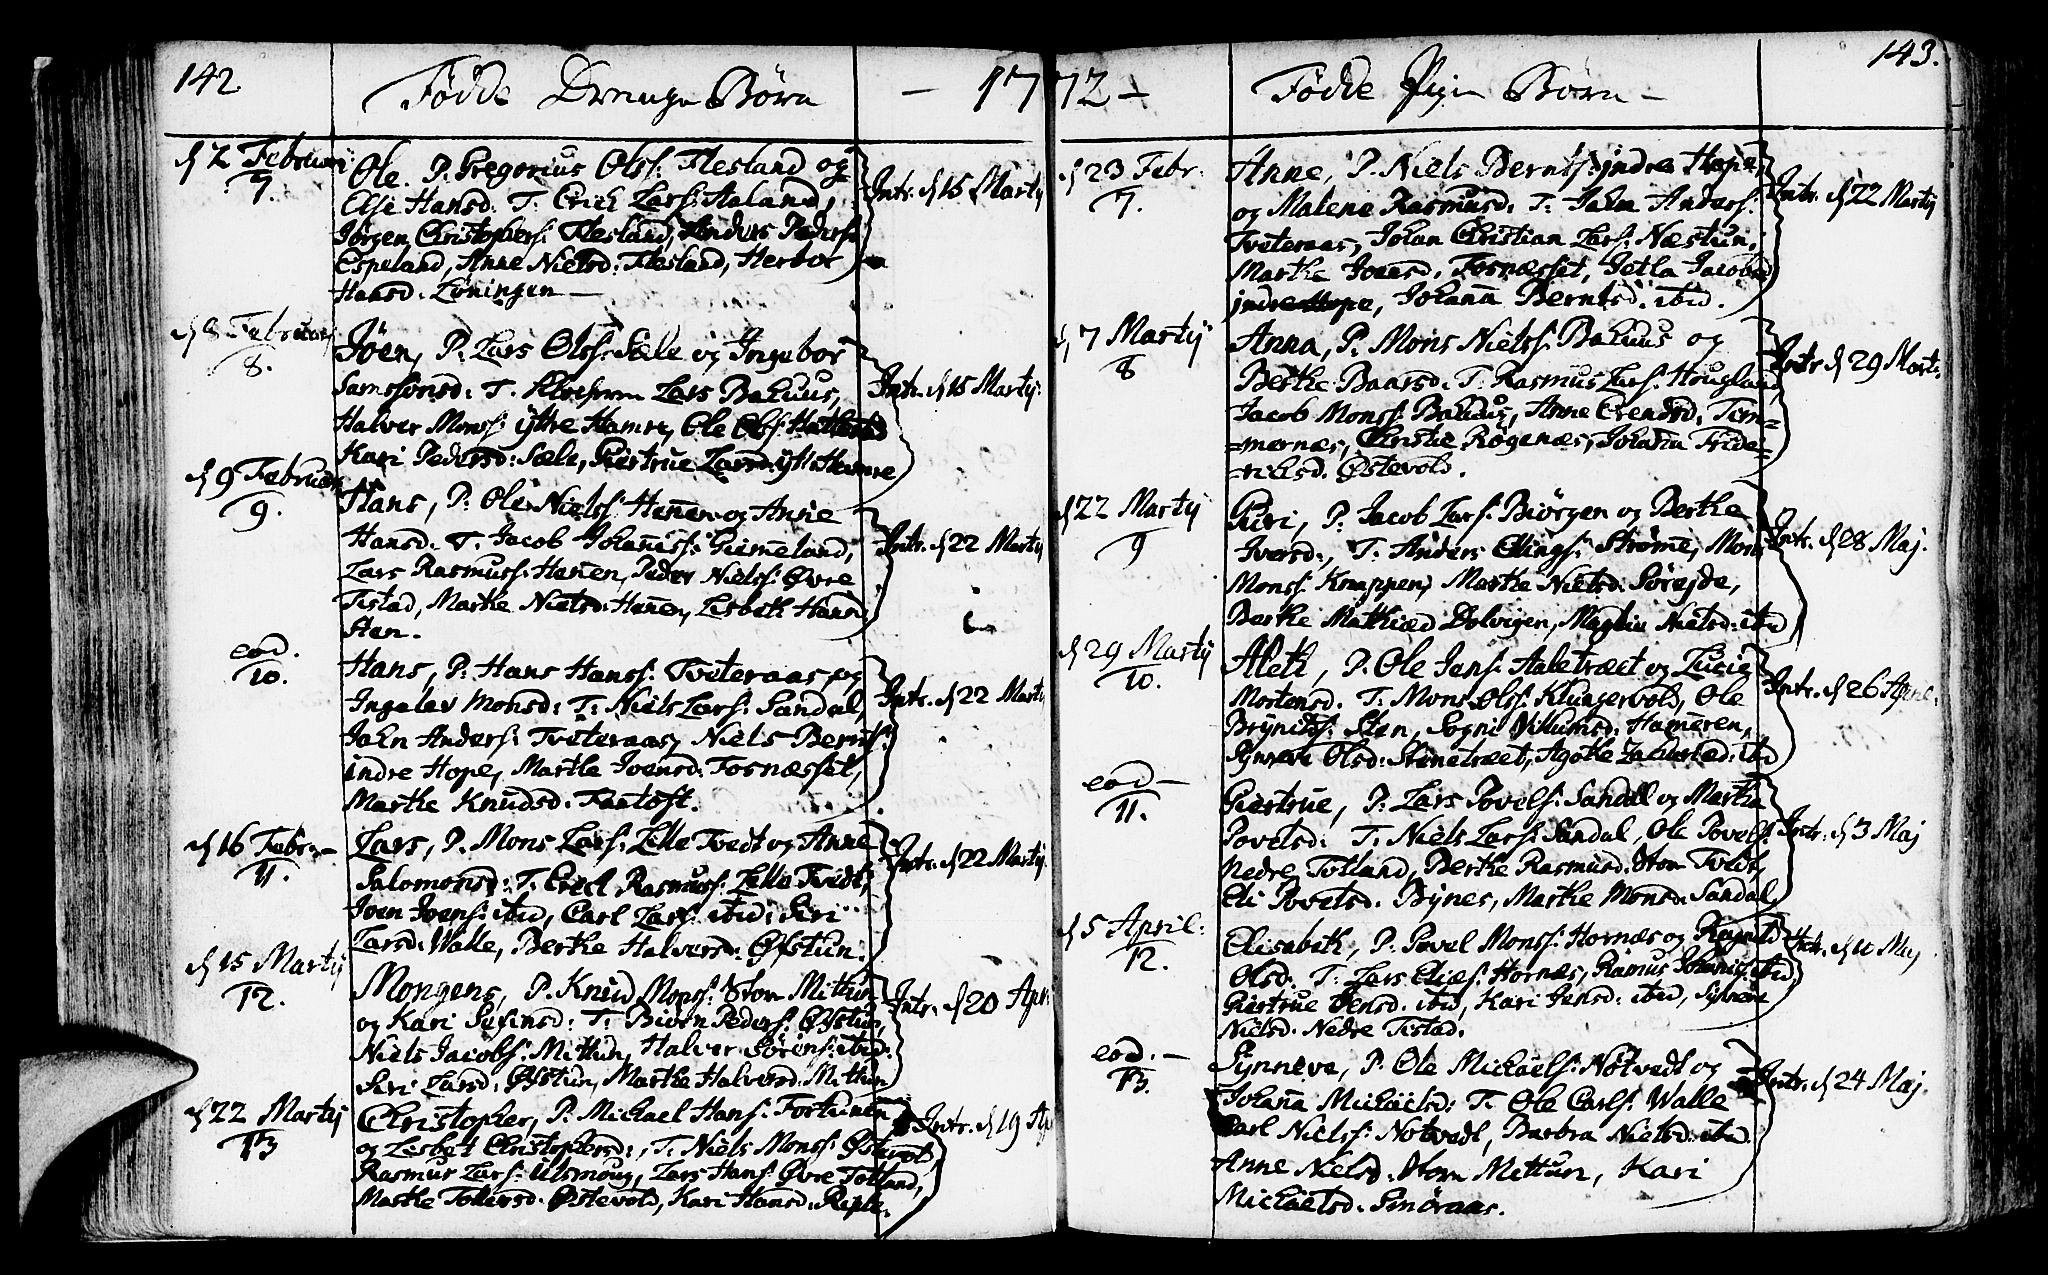 142
Fødde Drenge Børn - 17
d 2 Februari
7.
Ole. P. Gregorius Olss: Flesland og
Else Hansd. T. Erich Lars: Aaland,
Jørgen Christophers: Flesland, Anders Peders:
Espeland, Anne Nielsd: Flesland, Herbor
Hansd. Løningen —
Intr. d 15 Martij
d 8 Februarj
8.
Joen, P. Lars Olss: Sæle og Ingebor
Samssonsd: T. Lars Bahuus,
Halver Monss: ytre Hamre, Ole Olss:
Kari Pedersd: Sæle, Giertrue Larsd: ytt: Hamre
Intr. d 15 Martij:
d 9 Februarj
9.
Hans, P: Ole Nielss: Hañen og Anne
Hansd. T. Jacob Johañiss: Gieme̅land,
Lars Rasmuss: Hañen, Peder Nielss: Øvre
Tistad, Marthe Nielsd: Hañen, Lisbeth Hansd
Sten.
Intr. d 22 Martij
eod.
10.
Hans, P: Hans Hanss: Tveteraas og
Ingelev Monsd: T: Niels Lars: Sandal,
Jahn Anders: Tveteraas, Niels Bernts:
indre Hope, Marthe Joensd: Fosnæsset,
Marthe Knudsd. Fantoft.
Intr. d 22 Martij
d 16 Febr:—
11.
Lars, P. Mons Lars: Lille Tvedt og Anne
Salomonsd: T. Erich Rasmuss: Lille Tvedt,
Joen Joens: ibid, Carl Lars: ibid: Siri
Larsd: Walle, Berthe Halversd: Øfstun.
Intr. d 22 Martij.
d 15 Martij
12.
Mongens, P. Knud Monss: Stor Mittun
og Kari Sefinsd: T: Biørn Peders: Øfstun,
Niels Jacobs: Mittun, Halver Sørens: ibid:
Siri Larsd: Øfstun, Marthe Halversd: Mittun
Intr. d 20 Apr:
d 22 Martij
13
Christopher, P. Michael Hans: Fortunen
og Lisbet Christophersd:, T. Niels Monss: Østevol,
Rasmus Lars: Ulsmoug, Lars Hans: Øvre Totland,
Marthe Tollersd. Østevold, Kari Hansd: Riple.
Intr. d 19 Ap
72 —
Fødde Pige Børn —
143.
d 23 Febr:
7.
Anne, P. Niels Bernts: jndre Hope,
og Malene Rasmusd: T: Jahn Anders:
Tveteraas, Johan Christian Lars: Næstun,
Marthe Joensd. Fosnæsset, Jetla Jacobsd
jndre Hope, Johaña Berntsd: ibid.
Intr. d 22 Martij
d 7 Martij
8
Anna, P: Mons Nielss: Bahuus og
Berthe Baarsd. T. Rasmus Lars: Hougland,
Jacob Monss: Bahuus, Anne Erendsd: Tem=
=mernæs, Christie Røgenæs, Johaña Fride=
=richsd. Østevold.
Intr d 29 Marti.
d 22 Martij
9
Guri, P: Jacob Lars: Biørgen og Berthe
Iversd:, T: Anders Ellings: Strøme, Mons
Monss: Knappen, Marthe Nielsd: Sørejde,
Berthe Mathiæd Dolvigen, Maghlu Nielsd: ibid
Intr. d 28 Maj.
d 29 Martij
10.
Aleth, P. Ole Jens: Aaletræet og Lucie
Mortensd. T. Mons Olss: Klungervold, Ole
Brynilss: Sten, Sogni Villumsd: Hameren,
Synneve Olsd: Stenetræet, Agathe Zachariæd: ibid
Intr. d 26 April:
eod —
11.
Giertrue, P: Lars Povels: Sandal og Martha
Povelsd: T: Niels Lars: Sandal, Ole Povels:
Nedre Totland, Berthe Rasmusd: Stor Tvedt,
Eli Povelsd. Bynes, Marthe Monsd. Sandal.
Intr. d 3 Maj
d 5 April:
12.
Elisabeth, P: Povel Monss: Hornæs og Ragnild
Olsd. T: Lars Eliæs: Hornæs, Rasmus Johaniss: ibid,
Giertrue Jensd: ibid, Kari Jensd: ibid, Synneve
Nielsd. Nedre Tistad.
Intr. d 11 Maj
eod. —
13.
Synneve, P. Ole Michaels: Nøtvedt og
Johaña Michaelsd: T. Ole Carls: Walle
Carl Nielss: Nøtvedt, Barbra Nielsd: ibid.
Anne Nielsd: Stor Mittun, Kari
Michaelsd. Smøraas.
Intr. d 24 Maj.